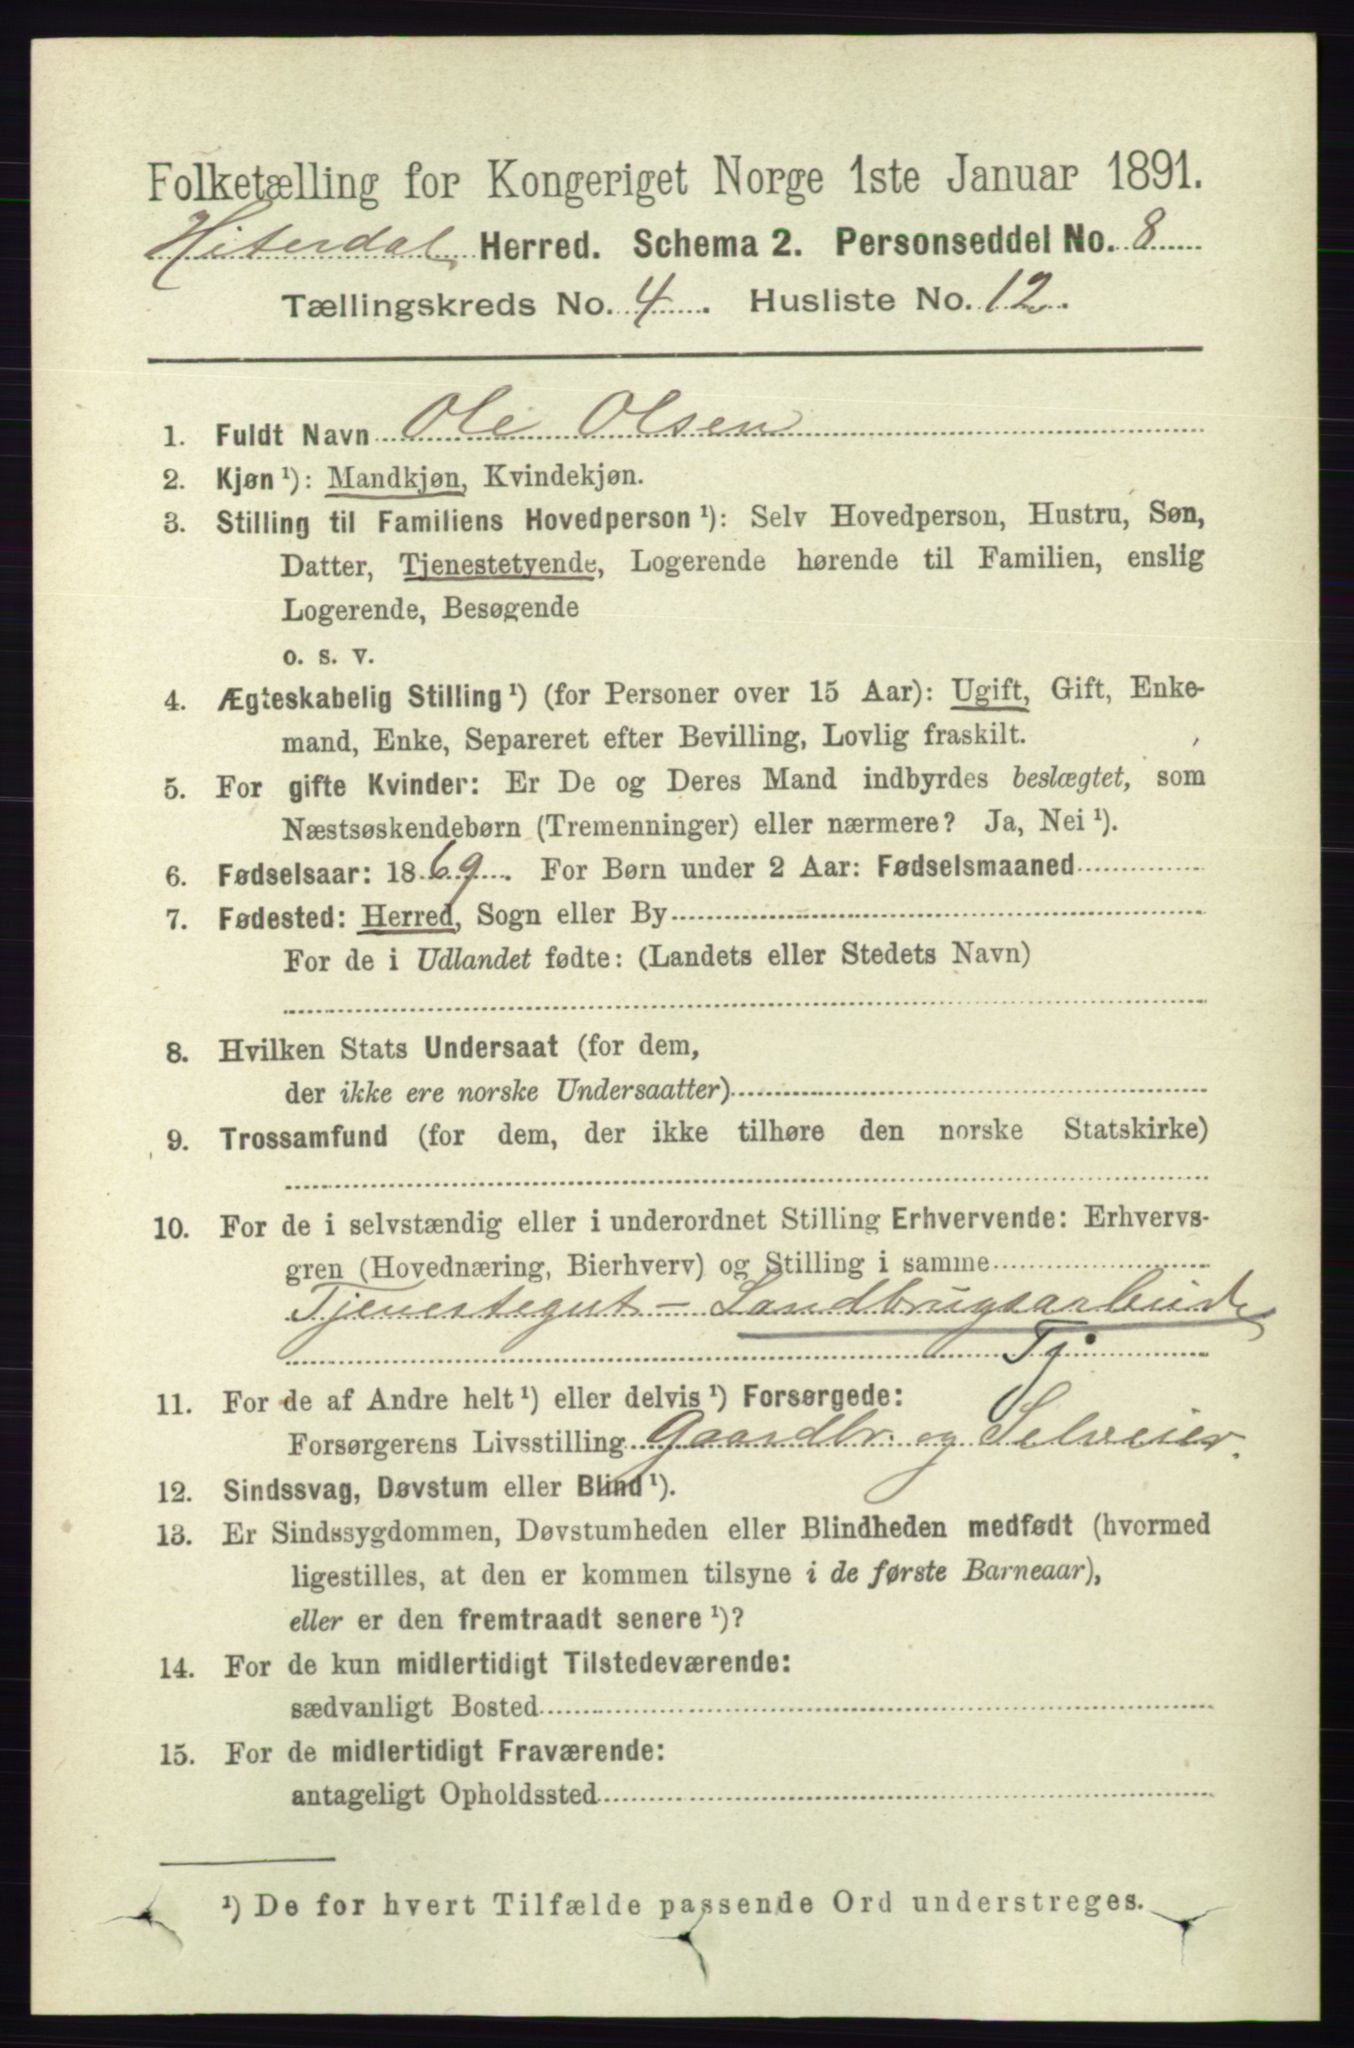 Folketælling for Kongeriget Norge 1ste Januar 1891.
Hiterdal Herred. Schema 2. Personseddel No. 8
Tællingskreds No. 4. Husliste No. 12.
1. Fuldt Navn Ole Olsen
2. Kjøn ¹): Mandkjøn, Kvindekjøn.
3. Stilling til Familiens Hovedperson ¹): Selv Hovedperson, Hustru, Søn,
Datter, Tjenestetyende, Logerende hørende til Familien, enslig
Logerende, Besøgende
o. s. v.
4. Ægteskabelig Stilling ¹) (for Personer over 15 Aar): Ugift, Gift, Enke-
mand, Enke, Separeret efter Bevilling, Lovlig fraskilt.
5. For gifte Kvinder: Er De og Deres Mand indbyrdes beslægtet, som
Næstsøskendebørn (Tremenninger) eller nærmere? Ja, Nei ¹).
6. Fødselsaar: 1869. For Børn under 2 Aar: Fødselsmaaned
7. Fødested: Herred, Sogn eller By
For de i Udlandet fødte: (Landets eller Stedets Navn)
8. Hvilken Stats Undersaat (for dem,
der ikke ere norske Undersaatter)
9. Trossamfund (for dem, der ikke tilhøre den norske Statskirke)
10. For de i selvstændig eller i underordnet Stilling Erhvervende: Erhvervs-
gren (Hovednæring, Bierhverv) og Stilling i samme
Tjenestegut - Landbrugsarbeide
Tj
11. For de af Andre helt ¹) eller delvis ¹) Forsørgede:
Forsørgerens Livsstilling Gaardbr. og Selveier.
12. Sindssvag, Døvstum eller Blind ¹).
13. Er Sindssygdommen, Døvstumheden eller Blindheden medfødt (hvormed
ligestilles, at den er kommen tilsyne i de første Barneaar),
eller er den fremtraadt senere ¹)?
14. For de kun midlertidigt Tilstedeværende:
sædvanligt Bosted
15. For de midlertidigt Fraværende:
antageligt Opholdssted
¹) De for hvert Tilfælde passende Ord understreges.